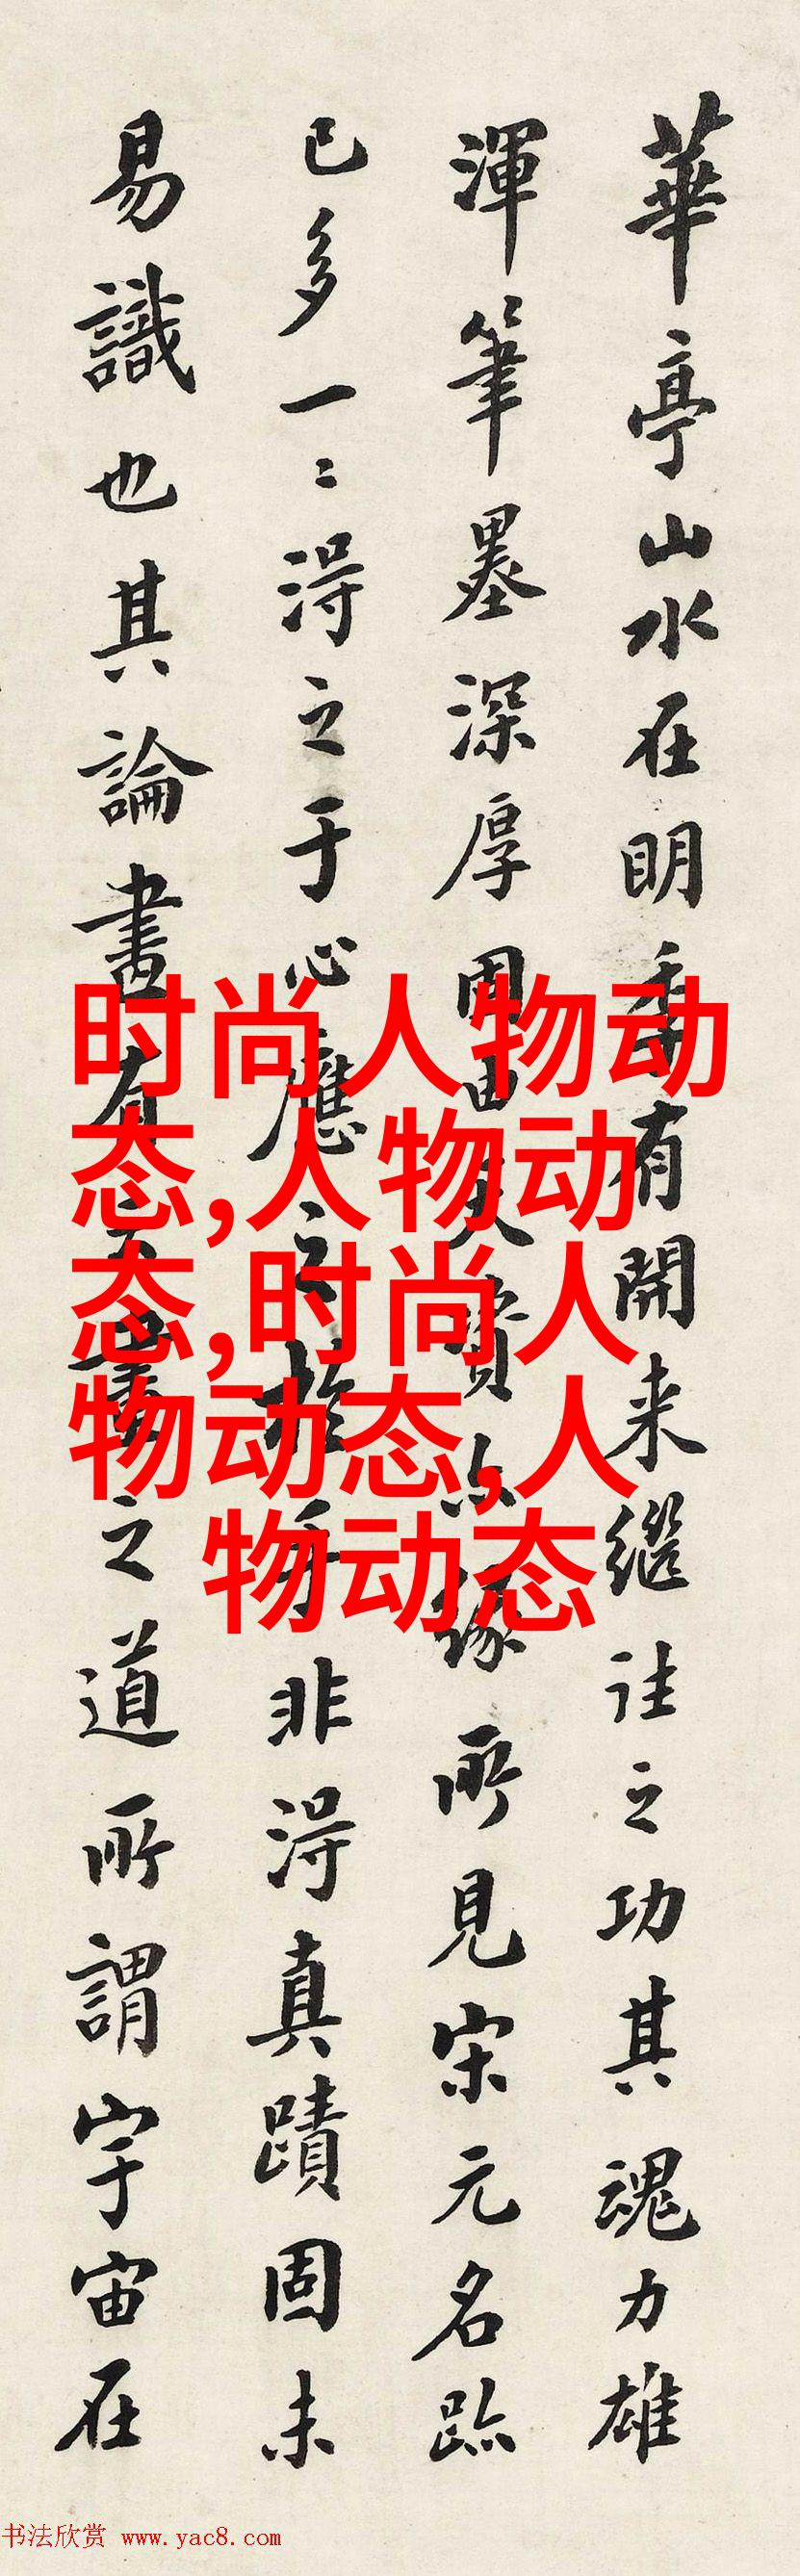 華亭山水在明季有開来繼往之功其魂力雄
渾筆墨深厚固由天資亦緣所見宋元名跡
已多一二得之于心應之於手非得真蹟固未
易識也其論書有之道所謂宇宙在
时尚人物动
态,人物动
态,时尚人
物动态,人
物动态
书法欣赏 www.yac8.com